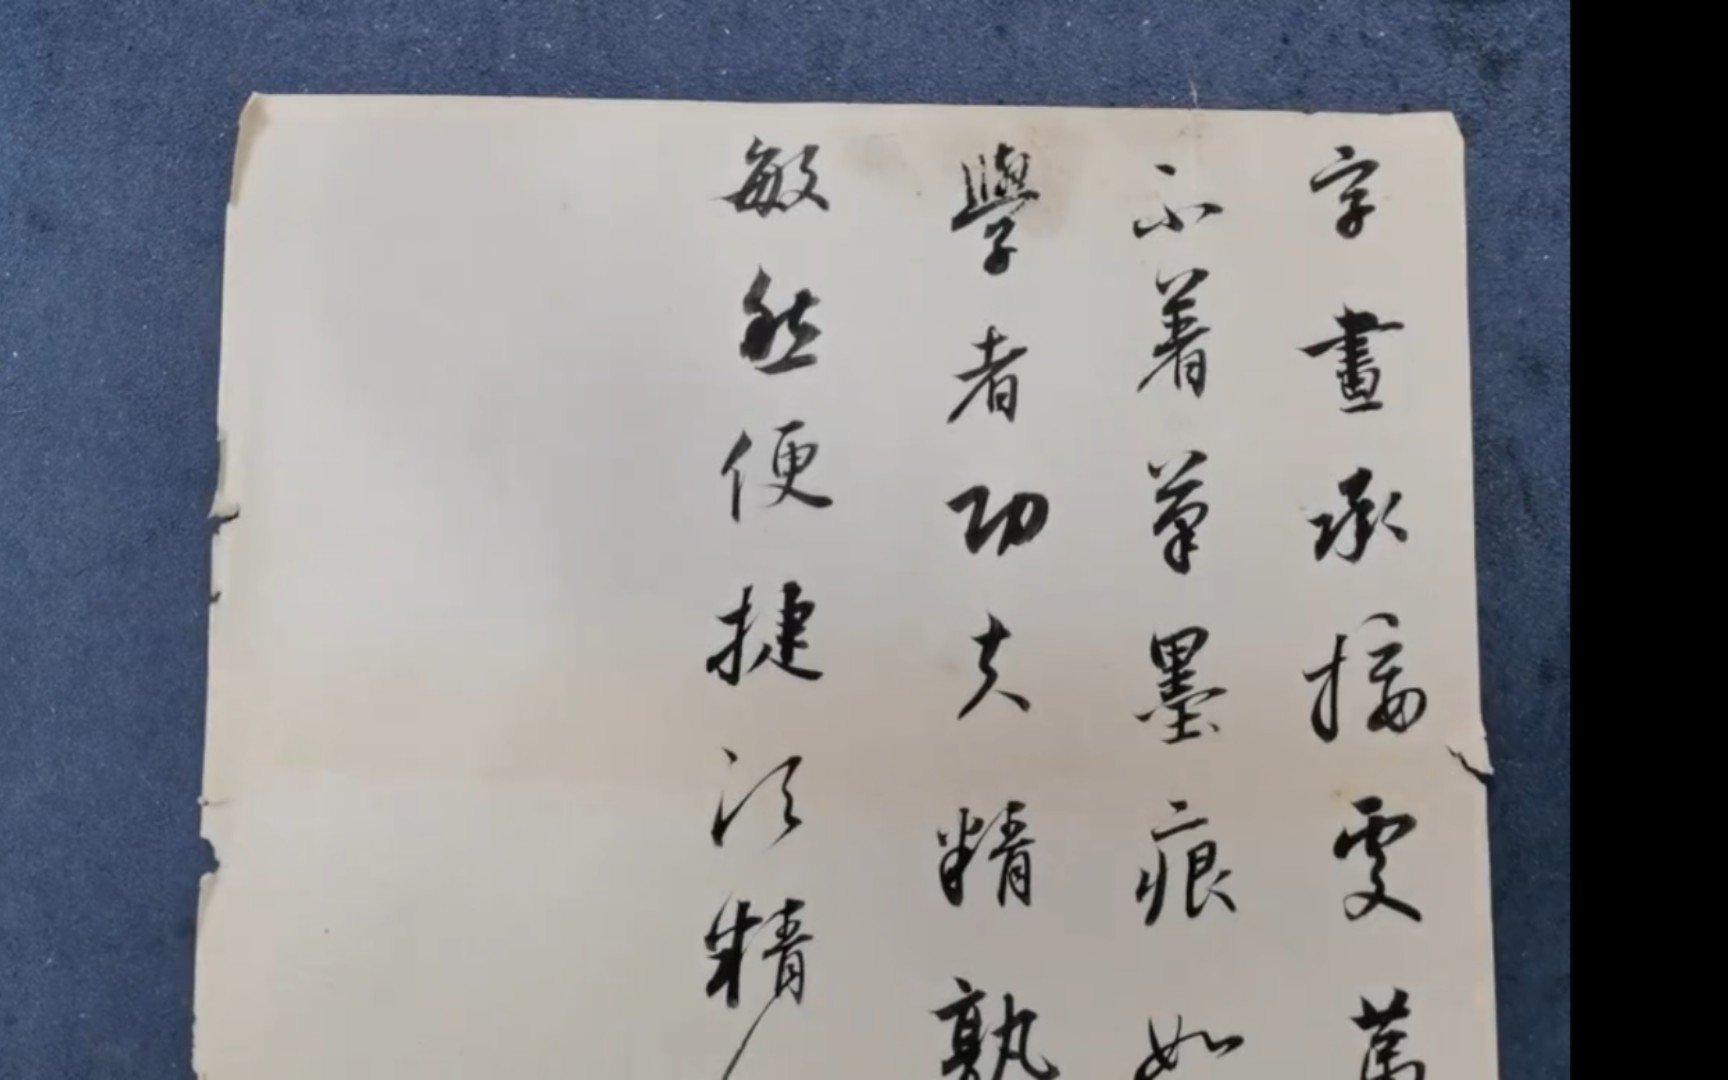 字畫承接雯萬
不着筆墨痕如
學者功夫精熟
敏然便捷須精